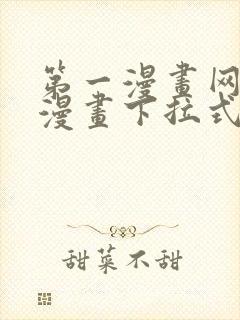 第一漫畫网
漫畫下拉式
甜菜不甜